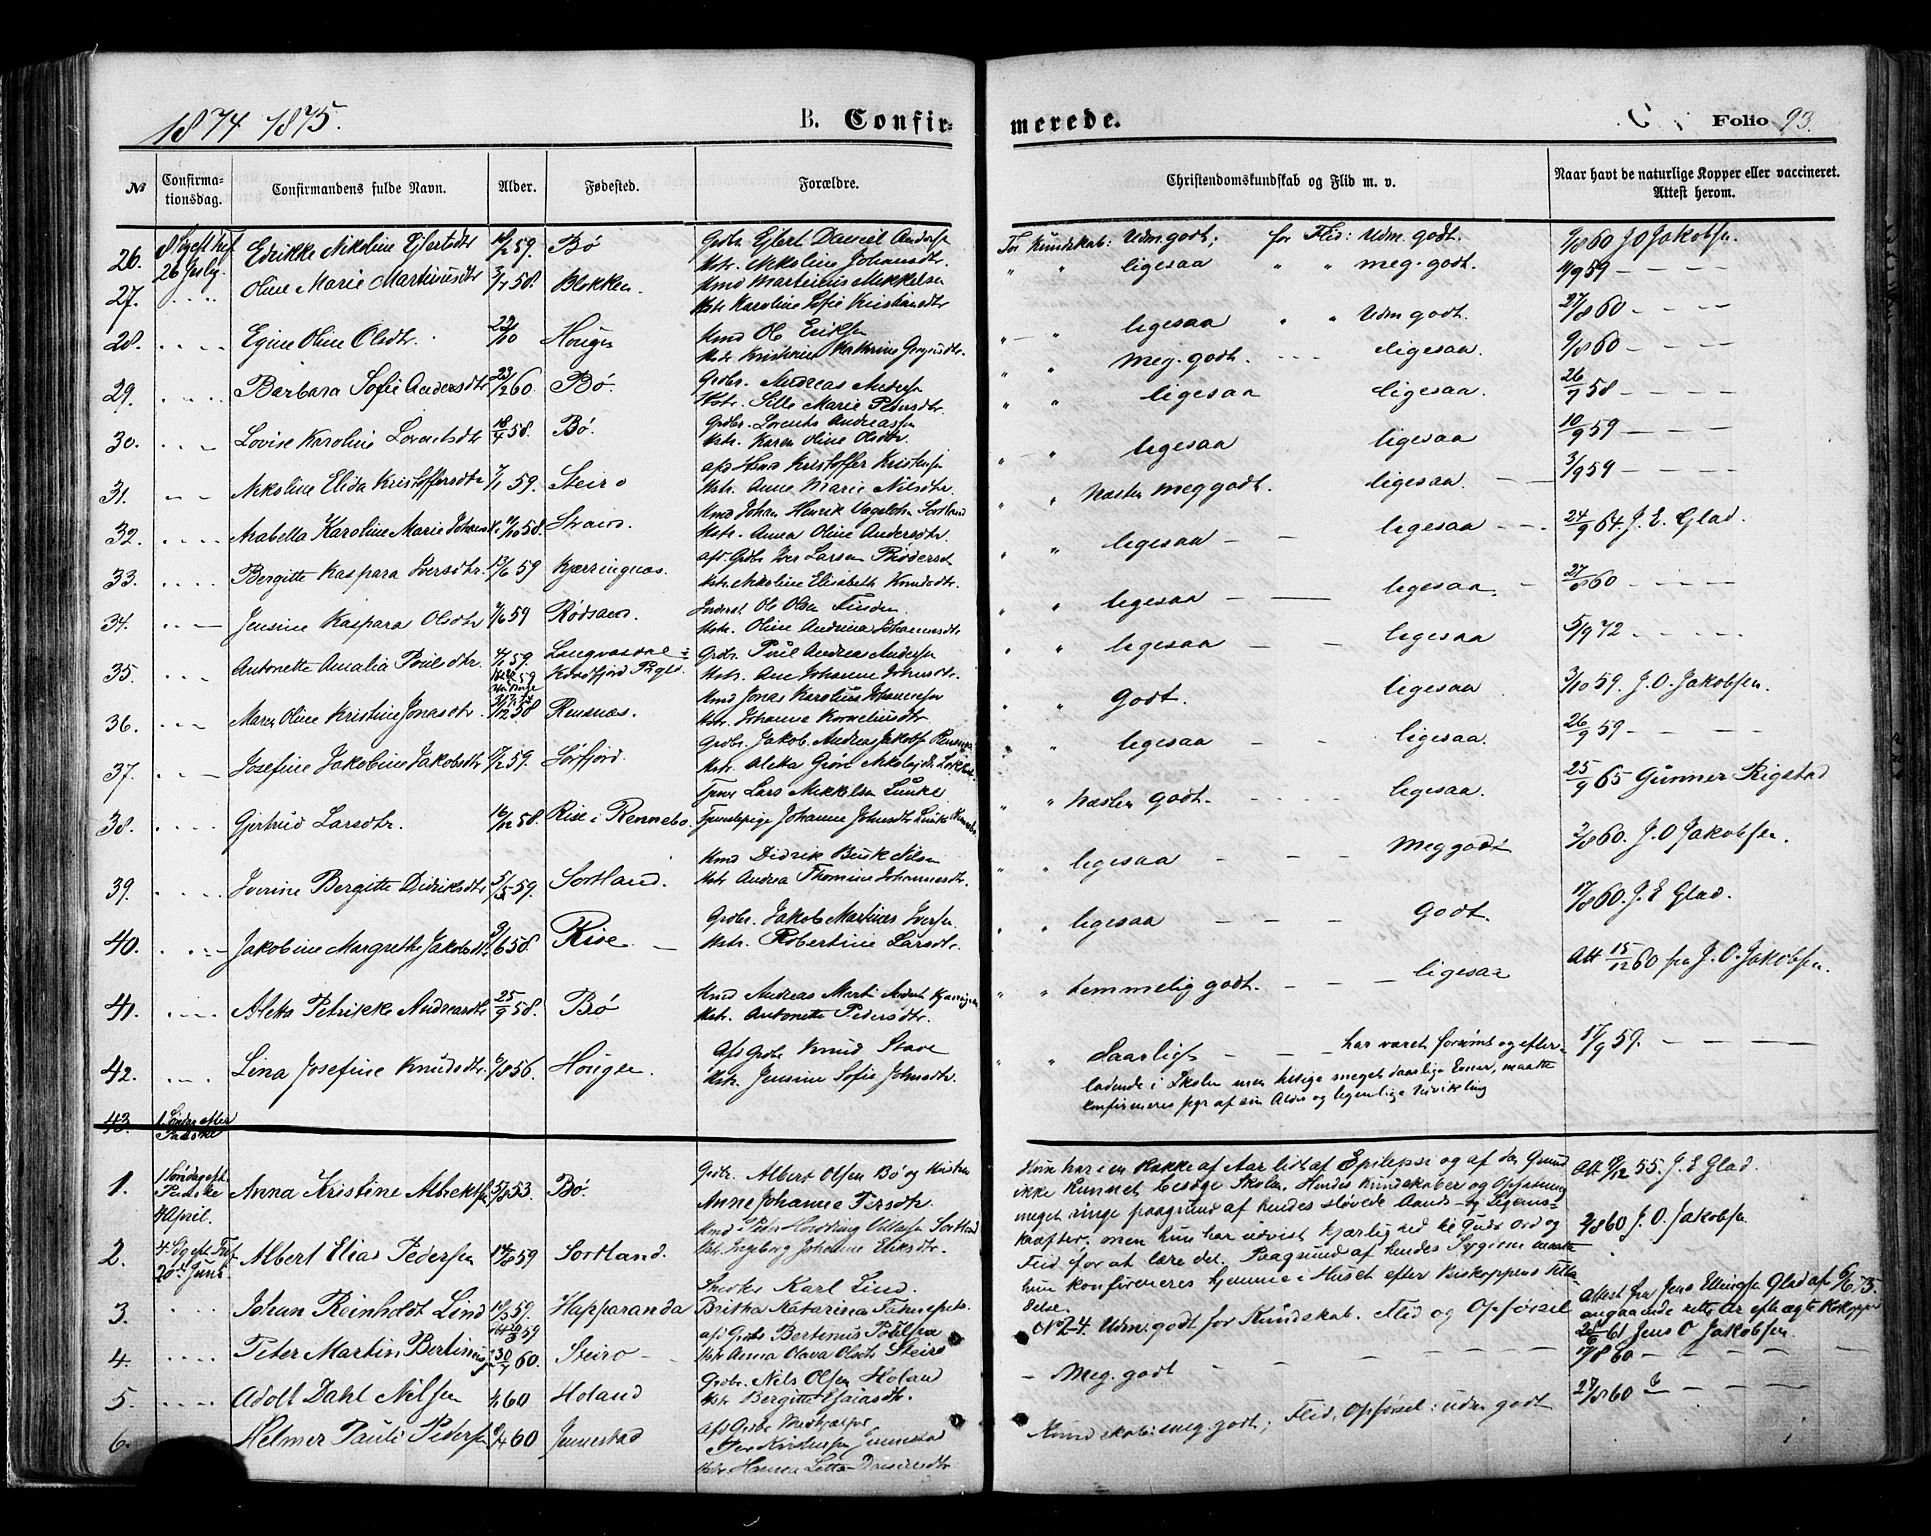 1874 1875.
B. Confir-
merede.
Folio 93.
№
Confirma-
tionsdag.
Confirmandens fulde Navn.
Alder.
Fødested.
Forældre.
Christendomskundskab og Flid m. v.
Naar havt de naturlige Kopper eller vaccineret.
Attest herom.
26. 26 July. Edrikke Nikoline Ejlertsdtr 59. Bø Grdbr. Ejlert Daniel Anders
Kstr. Nikoline Johansdtr.
For Kundskab: Udm. godt; for Flid: Udm. godt. 9/8 60 J O Jakobsen.
27. Oline Marie Martinusdtr 3/7 58. Blokken. Kmd Martinus Mikkelsen
Kstr Karoline Sofie Kristiandtr
ligesaa meg. godt. 11/9 59
28. Egine Oline Olsdtr. 22/10 Hougen Kmd Ole Eriksen
ligesaa Udm godt. 27/8 60
29. Barbara Sofie Andersdtr 23/2 60. Bø. Grdbr. Andreas Andersen
Kstr. Sille Marie Pedersdtr.
Meg. godt. ligesaa. 9/8 60
30. Lovise Karoline Lorentsdtr 18/4 58. Bø. Grdbr. Lorents Andreassen
Kstr. Karen Oline Olsdtr.
ligesaa ligesaa. 26/9 58
31. Nikoline Elida Kristoffersdtr 7/1 59. Steiro afd Kmd Kristoffer Kristensen
Kstr. Anne Marie Nilsdtr.
ligesaa ligesaa 10/9 59
32. Arabella Karoline Marie Johansd. 58. Kmd Johan Henrik Sortland
Kstr. Anna Oline Andersdtr.
Næsten meg godt. ligesaa. 3/9 59
33. Bergitte Kaspara Iversdtr. 13/6 59 Kjærringnæs. afd. Grdbr Iver Larsen
Kstr Nikoline Elisabeth Knudsdtr.
ligesaa ligesaa 24/9 64. J. E. Glad.
34. Jensine Kaspara Olsdtr 59 Rødsand. Inderst Ole Olsen
Kstr. Oline Andrina Johannesdtr
ligesaa ligesaa 27/8 60
35. Antonette Amalia Poulsdtr. 59. Langvasdal
Kvædfjord Prgld. Grdbr. Poul Andreas Andersen
Kstr. Ane Johanne Johnsdtr.
ligesaa ligesaa 5/9 72
36. Maren Oline Kristine Jonasdtr. 58 Rensnæs. Kmd Jonas Karolius Johannesen
Kstr. Johanna Korneliusdtr
Godt. ligesaa 3/10 59. J. O. Jakobsen.
37. Josefine Jakobine Jakobsdtr 17/2 59. Sørfjord. Grdbr. Jakob Andreas Jakobsen
Kstr. Aleta
ligesaa ligesaa. 26/9 59
38. Gjertrud Larsdtr. 58. Rise i Rennebo. Lars Mikkelsen Lunke
Johanne Johnsdtr
Næsten godt. ligesaa. 25/9 65 Gunner Rigstad
39. Iverine Bergitte Didriksdtr 5/5 59. Sortland. Kmd Didrik Nilsen
Kstr Andrea Thomine Johannesdtr.
ligesaa Meg godt 2/8 60. J. O Jakobsen.
40. Jakobine Margrethe Jakobsdtr 9/6 58. Rise. Grdbr. Jakob Martinus Iversen
Kstr. Robertine Larsdtr.
ligesaa Godt. 17/8 60. J. E Glad.
41. Aleta Petrikke Andreasdtr 25/9 58. Bø Kmd Andreas Martin
Kstr. Antonette Pedersdtr.
temmelig godt. ligesaa Att 15/12 60 fra J. O. Jakobsen.
42. Lina Josefine Knudsdtr. 9/8 56. Hougen. Afd Grdbr Knud Stave
Kstr. Jensine Sofie Johnsdtr.
Daarligt har været forsømt og efter-
ladende i Skolen men besige meget daarlige Evner, maatte
konfirmeres pgr af sin Alder og legemlige Udvikling 17/9 59.
43. 1. Søndag efter
Paaske
1. 1 Søndag eft
Paaske
4 April. Anna Kristine Albrektsen 53. Bø. Grdbr. Albert Olsen Bø og Kustru
Anne Johanna Persdtr.
Hun har i en Række af Aar lidt af Epilepsi og af den Grund
ikke kunnet besøge Skolen. Hendes kundskaber og Opfatning
meget ringe paagrund af hendes sløvede Aands- og Legems-
kræfter. men hun har udvist kjærlighed til Guds Ord og
Flid for at lære det. Paagrund af hendes Sygdom maatte
hun konfirmeres hjemme i Huset efter Biskoppens Tilla
delse.
Att 9/12 55. J. E Glad.
2. 4. Sg eft Tref
20de Juni. Albert Elias Pedersen 14/8 59 Sortland. Sortland
Kst. Ingeborg Johanne Eliksdtr.
2/8 60 J. O. Jakobsen
3. Johan Reinholdt Lind 59. Happaranda Snedker Karl Lind.
Britha Katarina
No 2-4. Udm. godt for Kundskab, Flid og Opførsel
Attest fra Jens Ellingsen Glad af 6/6 75
angaaende rette eller ægte Kokopper
4. Peter Martin Bertinus 30/7 60. Steiro afd Grdbr Bertinus Poulsen
Kstr Anna Olava Olsdtr Steiro
28/6 61 Jens O Jakobsen.
5. Adolf Dahl Nilsen 60 Holand Grdbr. Nils Olsen Holand
Kstr Bergitte Esaiasdtr.
Meg. godt 17/8 60
6. Helmer Pauli Pedersen 60 Jennestad afd Grdbr
Per Kristensen Jennestad
Kstr Hanna Danielsdtr
Kundskab: meg godt; Flid, Opførsel: udm godt 27/8 60